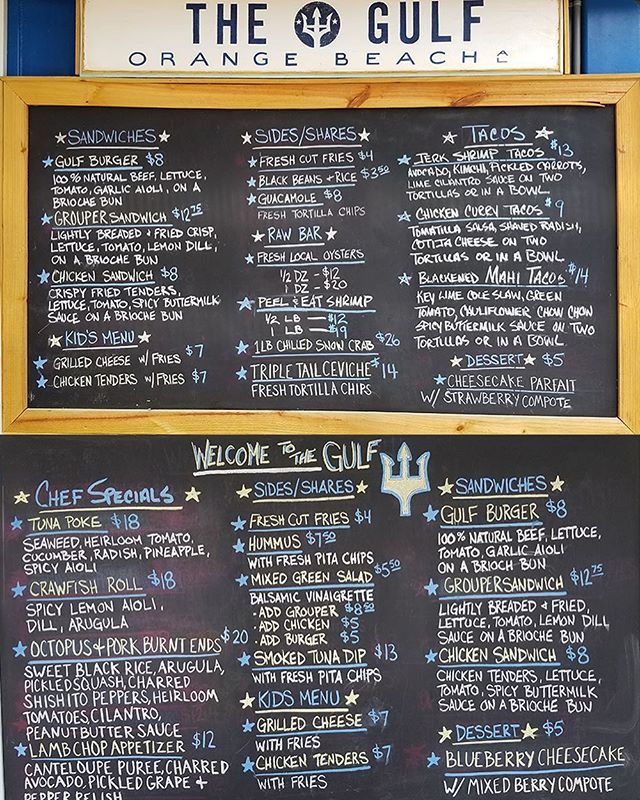 THE GULF
ORANGE BEACH
SANDWICHES
GULF BURGER $8
100% NATURAL BEEF, LETTUCE,
TOMATO, GARLIC AIOLI, ON A
BRIOCHE BUN
GROUPER SANDWICH $12.75
LIGHTLY BREADED & FRIED CRISP,
LETTUCE, TOMATO, LEMON DILL,
ON A BRIOCHE BUN
CHICKEN SANDWICH $8
CRISPY FRIED TENDERS,
LETTUCE, TOMATO, SPICY BUTTERMILK
SAUCE ON A BRIOCHE BUN
KID'S MENU
GRILLED CHEESE W/ FRIES $7
CHICKEN TENDERS W/ FRIES $7
SIDES/SHARES
FRESH CUT FRIES $4
BLACK BEANS + RICE $3.50
GUACAMOLE $8
FRESH TORTILLA CHIPS
RAW BAR
FRESH LOCAL OYSTERS
1/2 DZ - $12
1 DZ - $20
PEEL & EAT SHRIMP
1/2 LB — $12
1 LB — $19
1LB CHILLED SNOW CRAB $26
TRIPLE TAIL CEVICHE $14
FRESH TORTILLA CHIPS
TACOS
JERK SHRIMP TACOS $13
AVOCADO, KIMCHI, PICKLED CARROTS,
LIME CILANTRO SAUCE ON TWO
TORTILLAS OR IN A BOWL
CHICKEN CURRY TACOS $9
TOMATILLA SALSA, SHAVED RADISH,
COTIJA CHEESE ON TWO
TORTILLAS OR IN A BOWL
BLACKENED MAHI TACOS $14
KEY LIME COLE SLAW, GREEN
TOMATO, CAULIFLOWER CHOW CHOW
SPICY BUTTERMILK SAUCE ON TWO
TORTILLAS OR IN A BOWL
DESSERT $5
CHEESECAKE PARFAIT
W/ STRAWBERRY COMPOTE
WELCOME TO THE GULF
CHEF SPECIALS
TUNA POKE $18
SEAWEED, HEIRLOOM TOMATO,
CUCUMBER, RADISH, PINEAPPLE,
SPICY AIOLI
CRAWFISH ROLL $18
SPICY LEMON AIOLI,
DILL, ARUGULA
OCTOPUS & PORK BURNT ENDS $20
SWEET BLACK RICE, ARUGULA,
PICKLED SQUASH, CHARRED
SHISHITO PEPPERS, HEIRLOOM
TOMATOES CILANTRO,
PEANUT BUTTER SAUCE
LAMB CHOP APPETIZER $12
CANTELOUPE PUREE, CHARRED
AVOCADO, PICKLED GRAPE +
PEPPER RELISH
SIDES/SHARES
FRESH CUT FRIES $4
HUMMUS $7.50
WITH FRESH PITA CHIPS
MIXED GREEN SALAD $5.50
BALSAMIC VINAIGRETTE
· ADD GROUPER $8.50
· ADD CHICKEN $5
· ADD BURGER $5
SMOKED TUNA DIP $13
WITH FRESH PITA CHIPS
KIDS MENU
GRILLED CHEESE $7
WITH FRIES
CHICKEN TENDERS $7
WITH FRIES
SANDWICHES
GULF BURGER $8
100% NATURAL BEEF, LETTUCE,
TOMATO, GARLIC AIOLI
ON A BRIOCH BUN
GROUPER SANDWICH $12.75
LIGHTLY BREADED & FRIED,
LETTUCE, TOMATO, LEMON DILL
SAUCE ON A BRIOCHE BUN
CHICKEN SANDWICH $8
CHICKEN TENDERS, LETTUCE,
TOMATO, SPICY BUTTERMILK
SAUCE ON A BRIOCHE BUN
DESSERT $5
BLUEBERRY CHEESECAKE
W/ MIXED BERRY COMPOTE